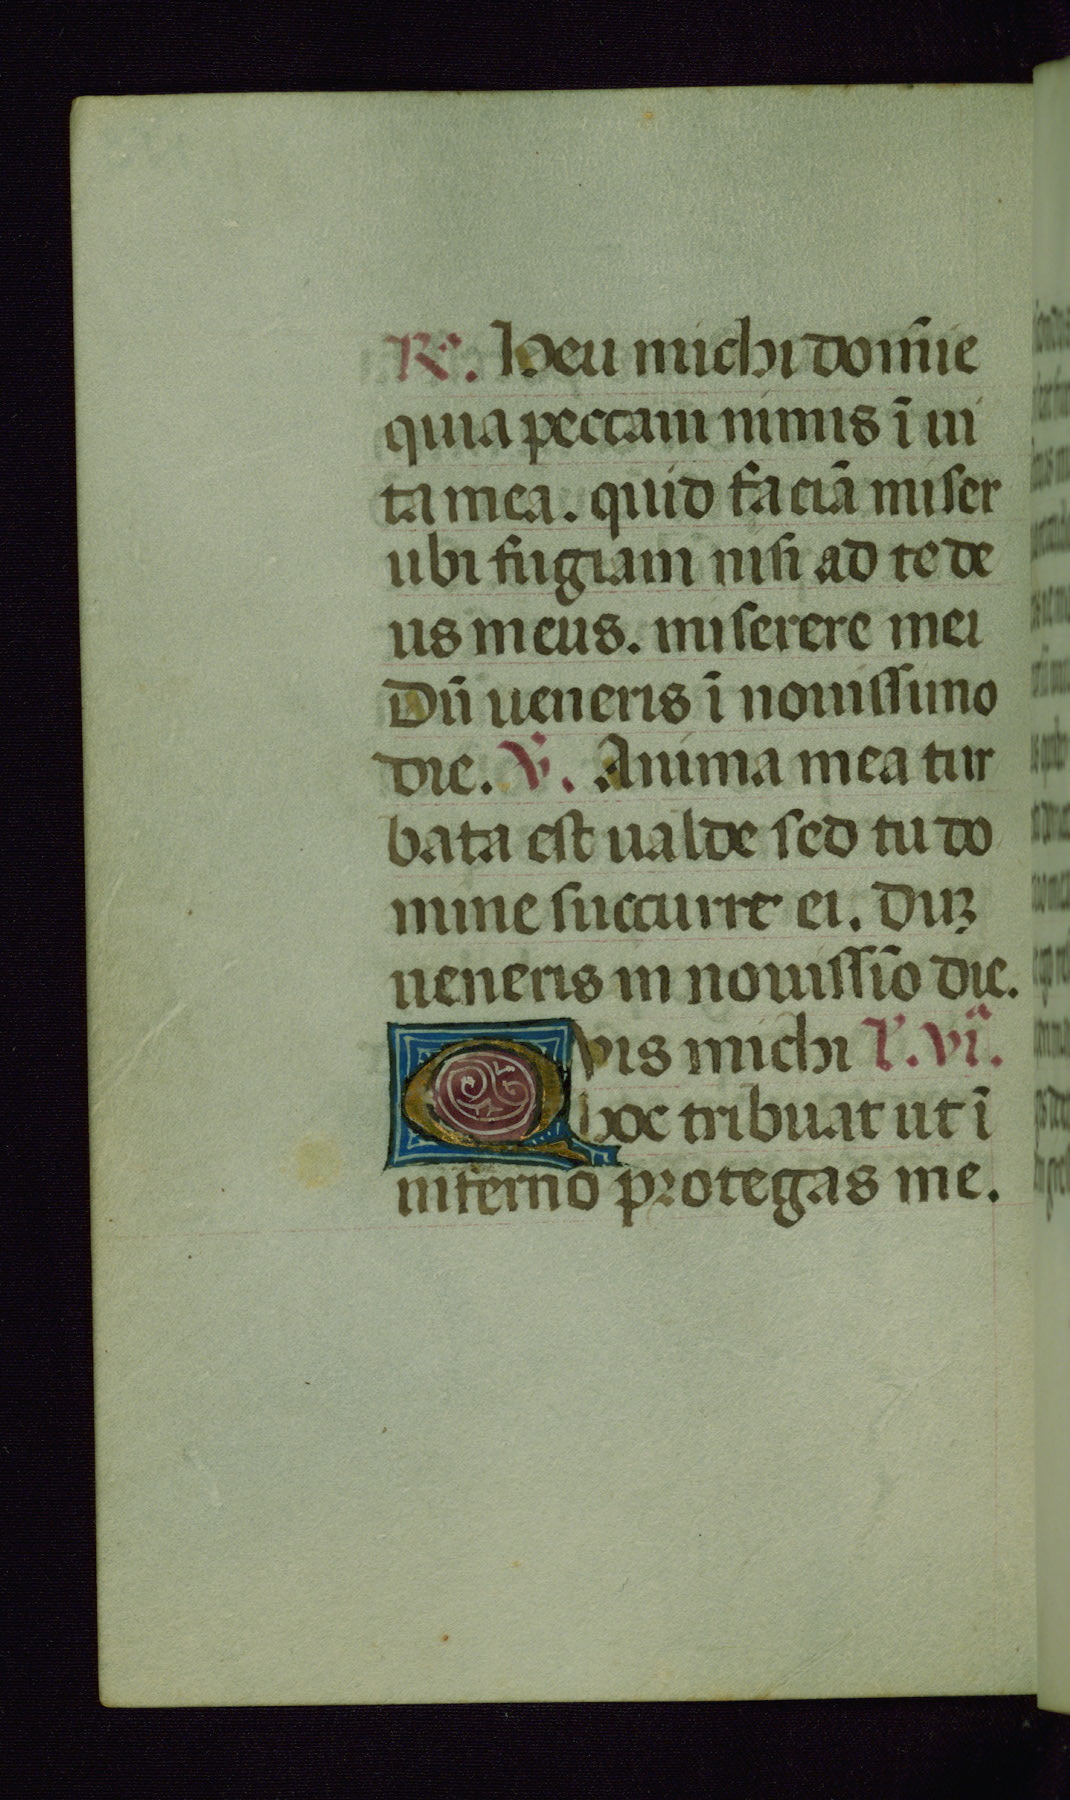 R̃. heu michi domĩe
quia peccaui nimis ĩ ui
ta mea. quid faciã miser
ubi fugiam nisi ad te de
us meus. miserere mei
Dũ ueneris ĩ nouissimo
die. V̊. Anima mea tur
bata est ualde sed tu do
mine succurre ei. Duꝫ
ueneris in nouissĩo die.
Qvis michi l'. vjª.
hoc tribuat ut ĩ
inferno protegas me.